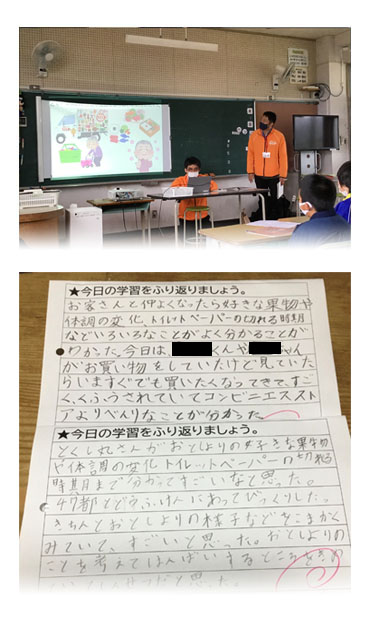 ★今日の学習をふり返りましょう。
お客さんと仲よくなったら好きな果物や
体調の変化、トイレットペーパーの切れる時期
などいろいろなことがよく分かることが
わかった。今日は、くんやちゃん
がお買い物をしていたけど見ていた
らいますぐでも買いたくなってきて、すご
く、くふうされていてコンビニエスス
アよりべんりなことが分かった。
★今日の学習をふり返りましょう。
とくし丸さんがおとしよりの好きな果物
や体調の変化トイレットペーパーの切れる
時期まで分かってすごいなと思った。
47都どうふけんにあってびっくりした。
きちんとおとしよりの様子などをこまかく
みていて、すごいと思った。おとしよりの
ことを考えてはんばいするところを
と思った。